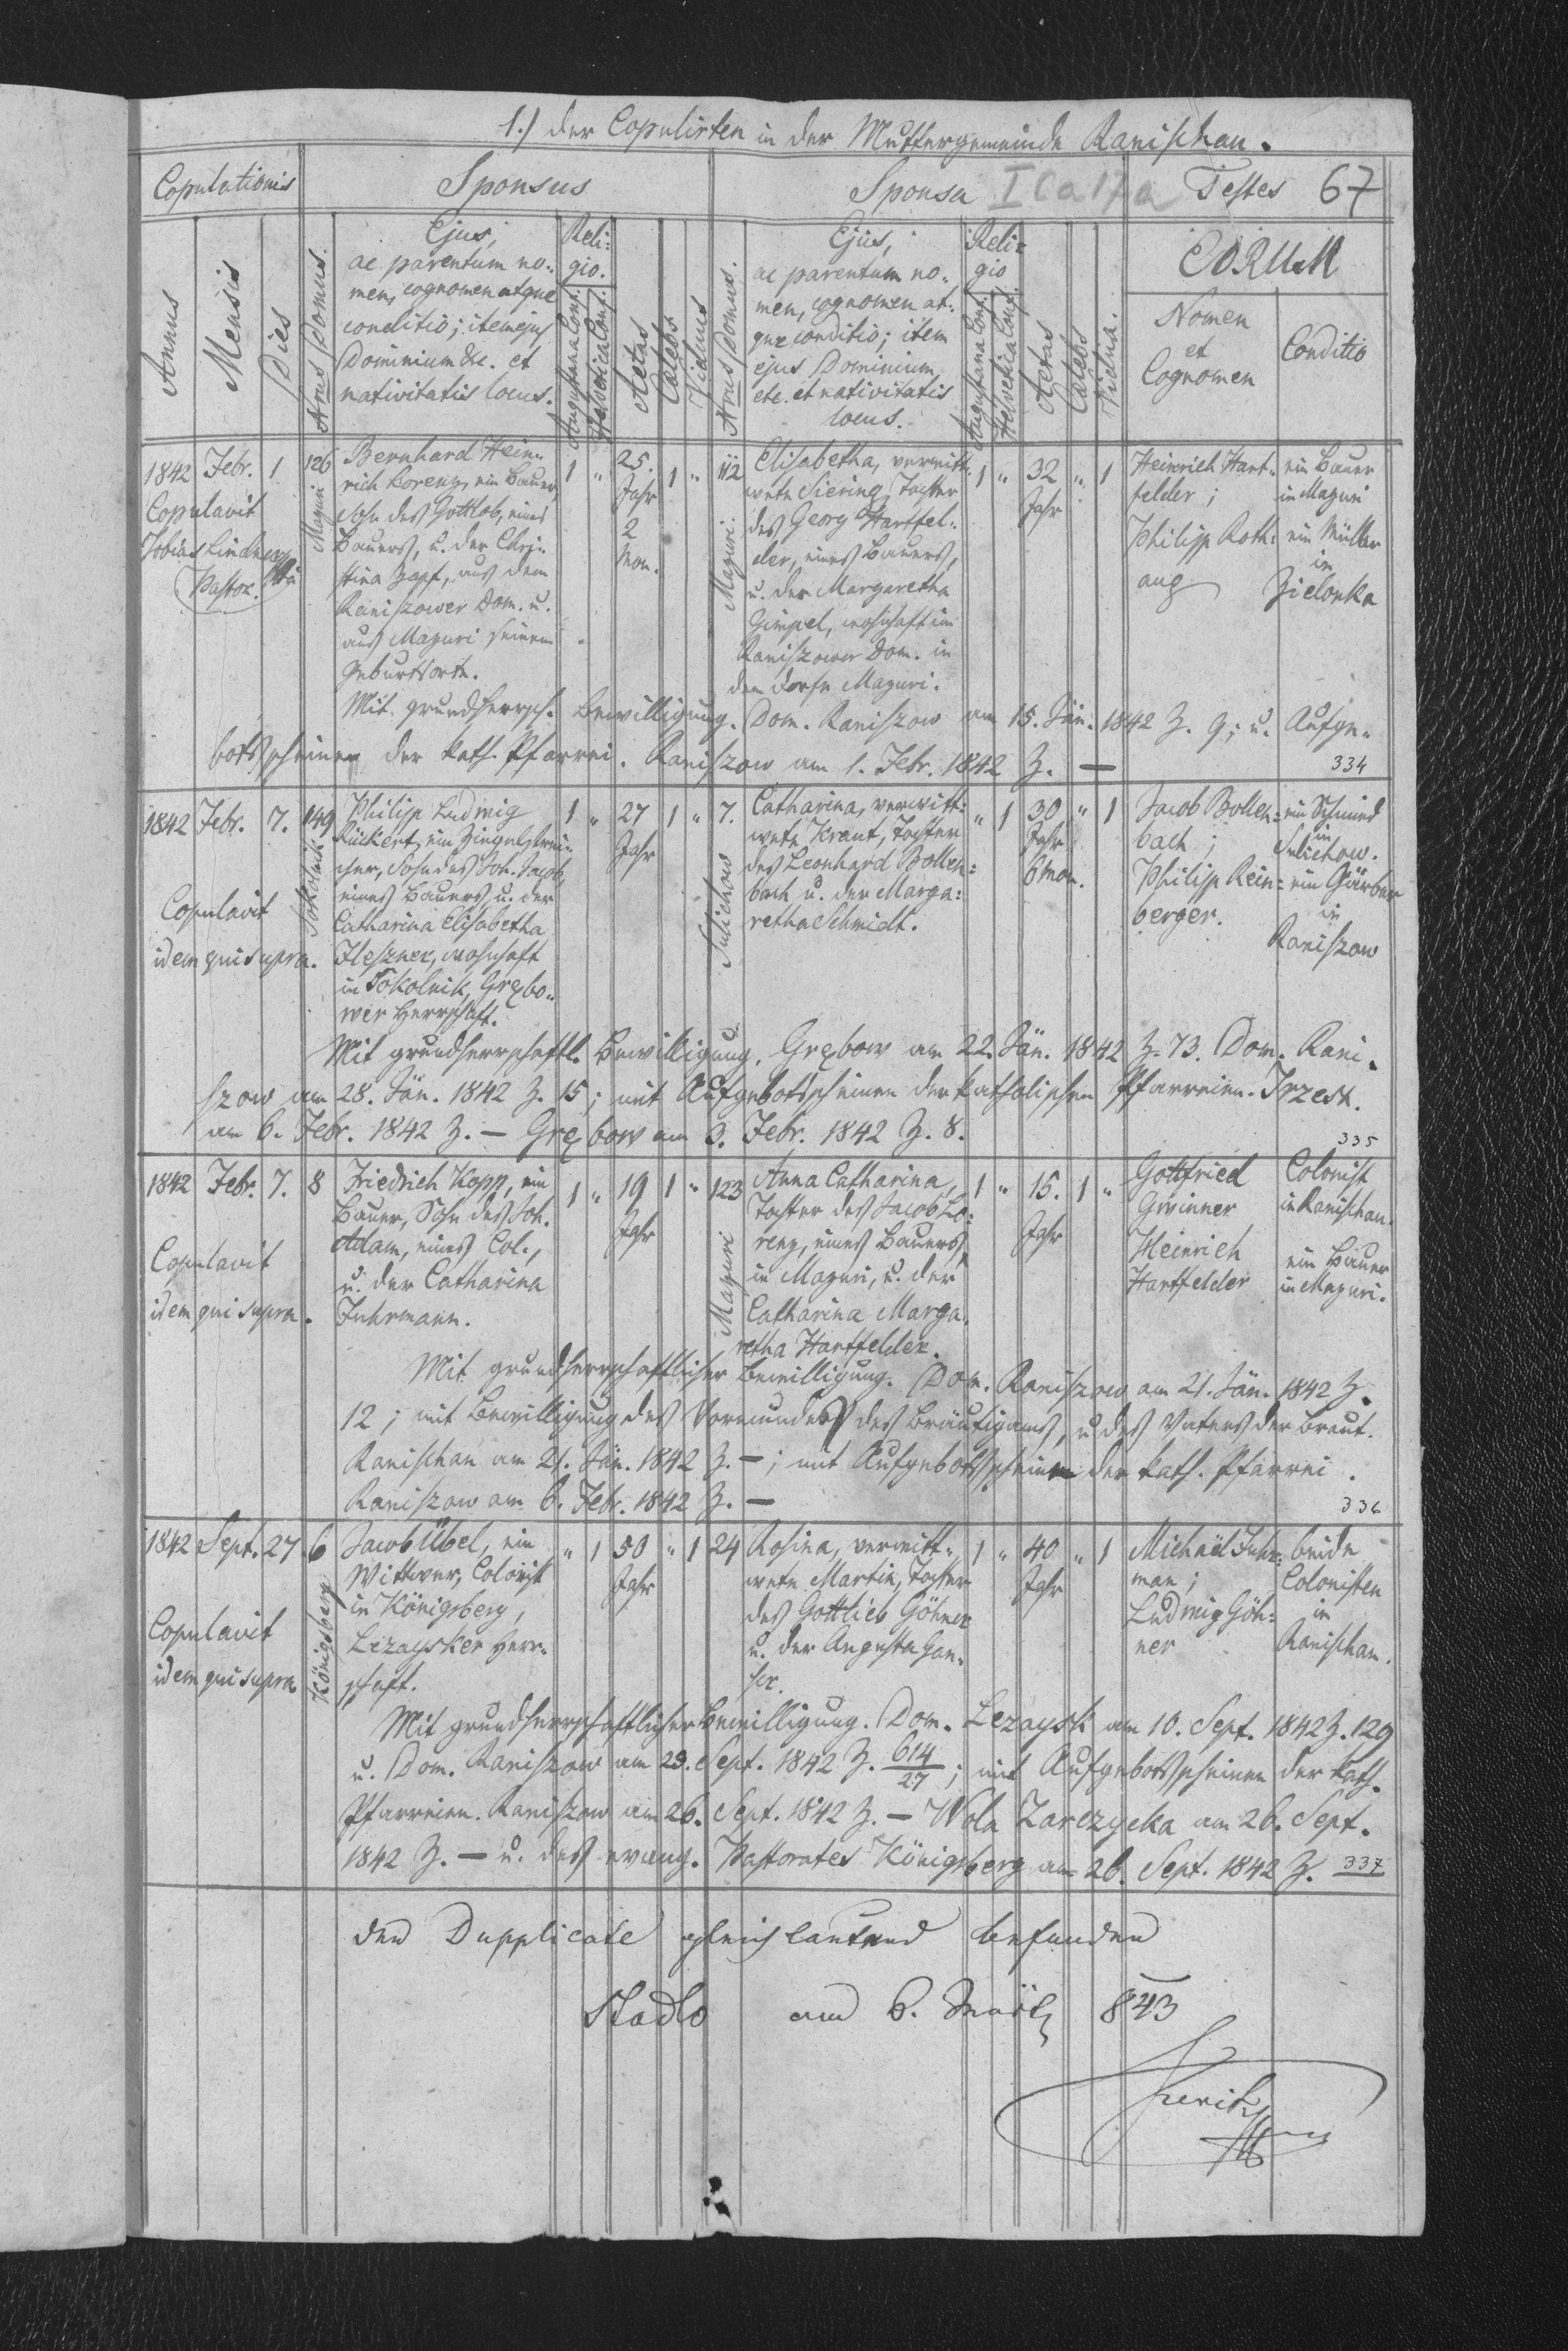 1.) der Copulirten in der Muttergemeinde Ranischau.
Copulationis
Sponsus
Sponsa I C a 17 a
Testes 67
Annus
Mensis
Dies
Nrus Domus.
Ejus,
ac parentum no-
men, cognomen atque
conditio; item ejus
Dominium &c. et
nativitatis locus.
Reli=
gio.
Augustana Conf.
Helvetica Conf.
Aetas
Caelebs
Viduus
Nrus Domus.
Ejus,
ac parentum no-
men, cognomen at-
que conditio; item
ejus Dominium,
etc. et nativitatis
locus.
Reli=
gio
Augustana Conf.
Helvetica Conf.
Aetas
Caelebs
Vidua.
EORUM
Nomen
et
Cognomen
Conditio
1842 Febr. 1
Copulavit
Tobias Lindner
Pastor.
126
Mazuri
Bernhard Hein-
rich Lorenz, ein Bauer,
Sohn des Gottlob, eines
Bauers, u. der Chri-
stina Zapf, aus dem
Raniszower Dom. u.
aus Mazuri seinem
Geburtsorte.
1 " 25.
Jahr
2
Mon.
1 "
112
Mazuri
Elisabetha, verwitt-
wete Siering, Tochter
des Georg Hartfel-
der, eines Bauers,
u. der Margaretha
Gimpel, wohnhaft im
Raniszower Dom. in
dem Dorfe Mazuri.
1 " 32 " 1
Jahr
Heinrich Hart-
felder;
Philipp Roth-
aug
ein Bauer
in Mazuri
ein Müller
in
Zielonka
Mit grundherrsch. Bewilligung. Dom. Raniszow am 15. Jän. 1842 Z. 9; u. Aufge-
botsscheinen der kath. Pfarrei. Raniszow am 1. Febr. 1842 Z. —
334
1842 Febr. 7.
Copulavit
idem qui supra.
149
Sokolnik
Philipp Ludwig
Rückert, ein Ziegelstrei-
cher, Sohn des Joh. Jacob,
eines Bauers u. der
Catharina Elisabetha
Fleszner, wohnhaft
in Sokolnik, Grębo-
wer Herrschaft.
1 " 27 1 "
Jahr
7.
Sulichow
Catharina, verwitt-
wete Kraut, Tochter
des Leonhard Bollen=
bach u. der Marga=
retha Schmidt.
" 1 30 " 1
Jahr
6 Mon.
Jacob Bollen=
bach;
Philipp Rein=
berger.
ein Schmied
in
Sulichow.
ein Gärber
in
Raniszow
Mit grundherrschaftl. Bewilligung. Grębow am 22. Jän. 1842 Z. 73. Dom. Rani-
szow am 28. Jän. 1842 Z. 15; mit Aufgebotsscheinen der katholischen Pfarreien. Trzesn.
am 6. Febr. 1842 Z. — Grębow am 3. Febr. 1842 Z. 8.
335
1842 Febr. 7. 8
Copulavit
idem qui supra.
Friedrich Kopp, ein
Bauer, Sohn des Joh.
Adam, eines Col.,
u. der Catharina
Fuhrmann.
1 " 19 1 "
Jahr
123
Mazuri
Anna Catharina,
Tochter des Jacob Lo-
renz, eines Bauers
in Mazuri, u. der
Catharina Marga-
retha Hartfelder.
1 " 15. 1 "
Jahr
Gottfried
Gwinner
Heinrich
Hartfelder
Colonist
in Ranischau.
ein Bauer
in Mazuri.
Mit grundherrschaftlicher Bewilligung. Dom. Raniszow am 21. Jän. 1842 Z.
12; mit Bewilligung des Vormundes des Bräutigams, u. des Vaters der Braut.
Ranischau am 21. Jän. 1842 Z. —; mit Aufgebotsscheinen der kath. Pfarrei.
Raniszow am 6. Febr. 1842 Z. —
336
1842 Sept. 27. 6
Copulavit
idem qui supra
Königsberg
Jacob Übel, ein
Wittwer, Colonist
in Königsberg,
Lezaysker Herr-
schaft.
" 1 50 " 1
Jahr
24
Rosina, verwitt-
wete Martin, Tochter
des Gottlieb Göhner
u. der Augusta Gan-
ser.
1 " 40 " 1
Jahr
Michael Fuhr-
man;
Ludwig Göh=
ner
beide
Colonisten
in
Ranischau.
Mit grundherrschaftlicher Bewilligung. Dom. Lezaysk am 10. Sept. 1842 Z. 129
u. Dom. Raniszow am 23. Sept. 1842 Z. 614/27; mit Aufgebotsscheinen der kath.
Pfarreien. Raniszow am 26. Sept. 1842 Z. — Wola Zarczycka am 26. Sept.
1842 Z. — u. des evang. Pastorates Königsberg am 26. Sept. 1842 Z. 337
Dem Dupplicate gleichlautend befunden
Stadlo am 6. März 843